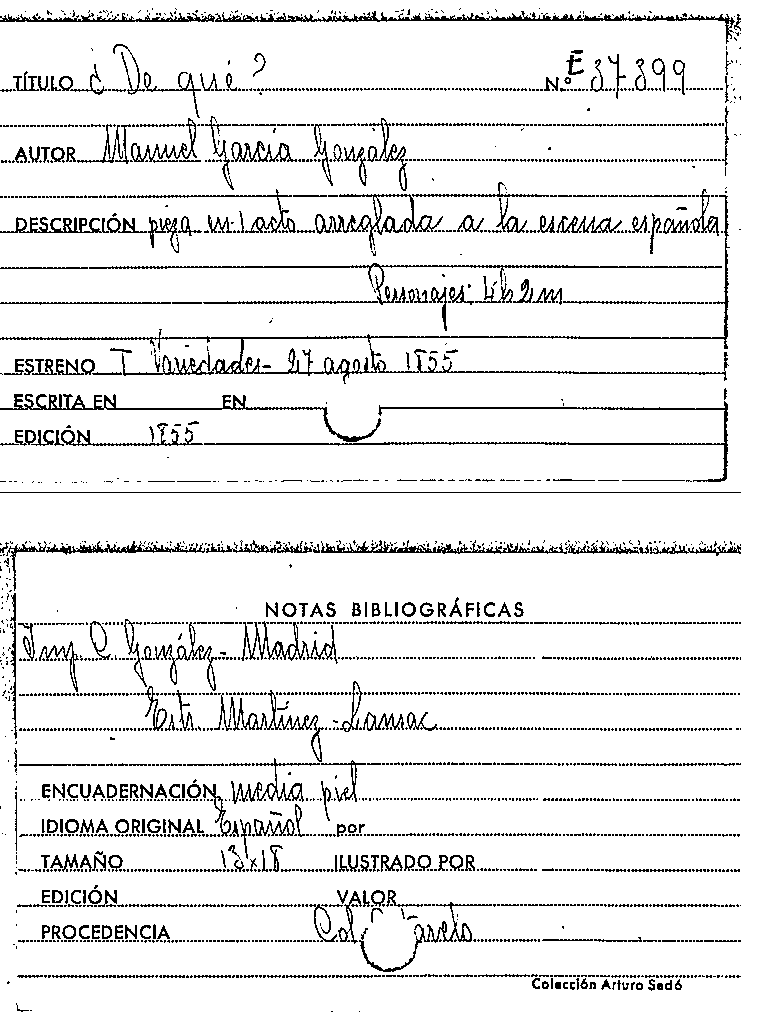 TÍTULO ¿De qué? N.º E 37899
AUTOR Manuel García González
DESCRIPCIÓN pieza en 1 acto arreglada a la escena española
Personajes: 4h 2m
ESTRENO T Variedades - 27 agosto 1855
ESCRITA EN EN
EDICIÓN 1855
NOTAS BIBLIOGRÁFICAS
Imp C González - Madrid
Estr. Martínez - Lansac
ENCUADERNACIÓN media piel
IDIOMA ORIGINAL Español por
TAMAÑO 13x18 ILUSTRADO POR
EDICIÓN VALOR
PROCEDENCIA Col
Colección Arturo Sedó